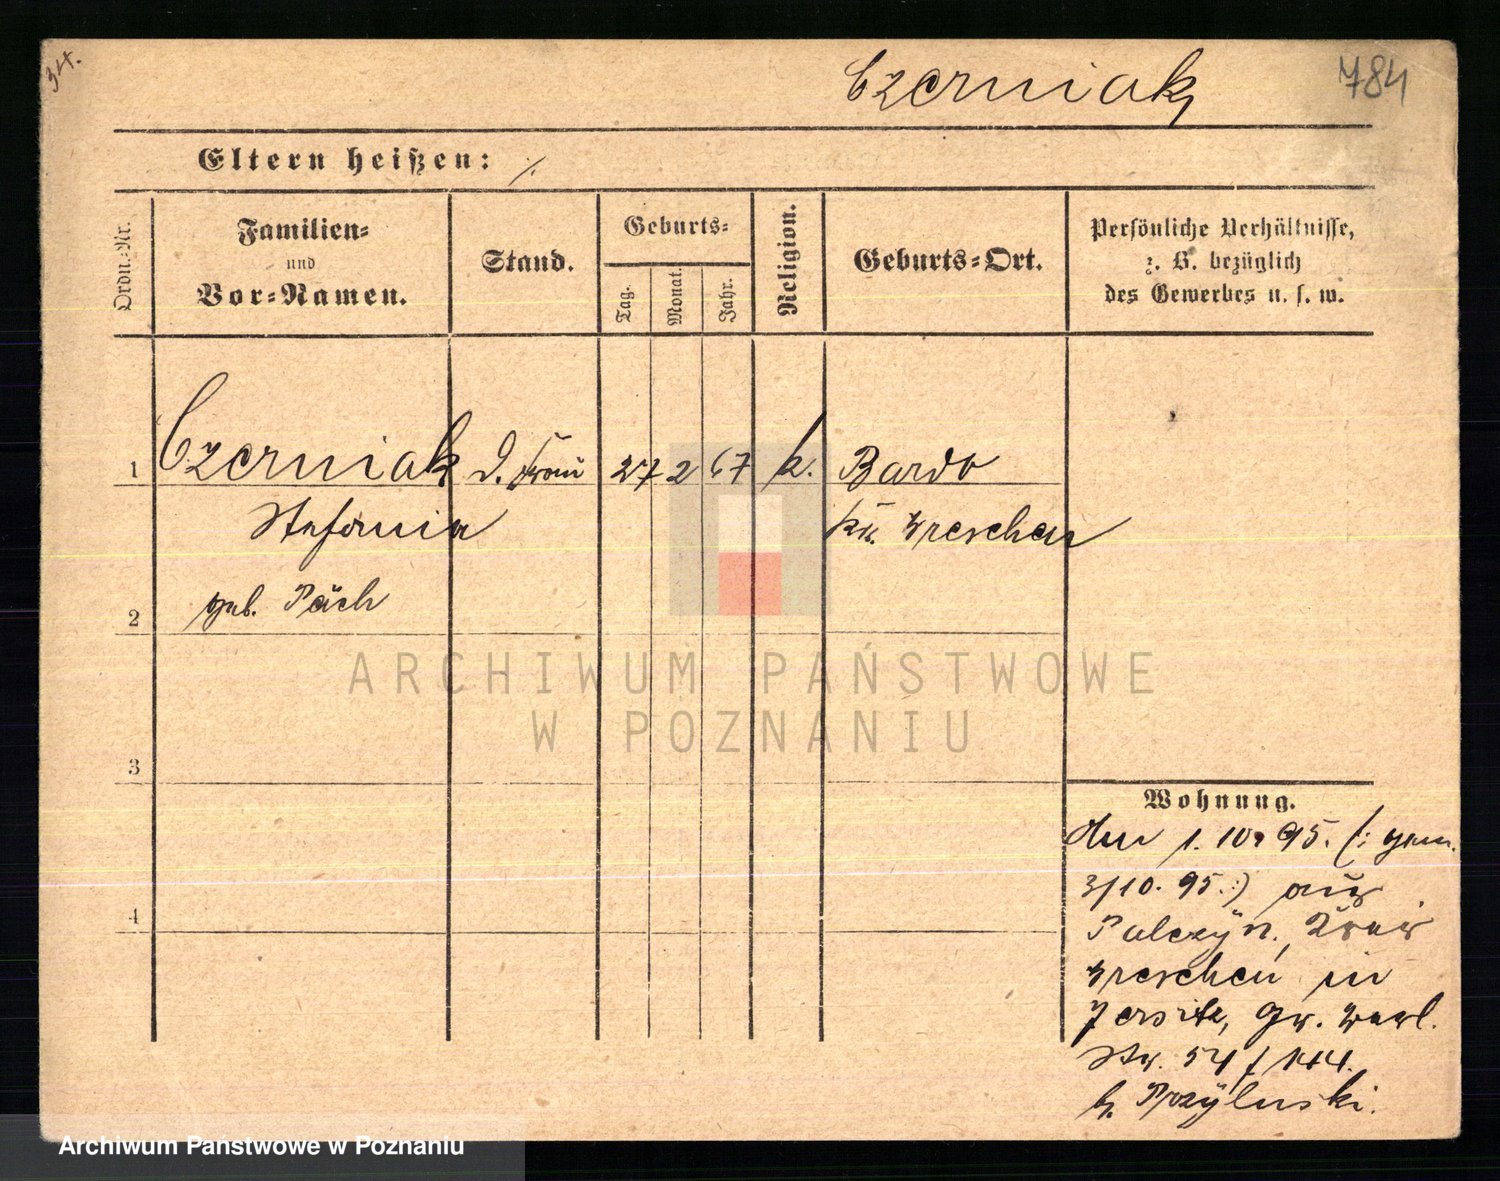 34.
Czerniak
784
Eltern heißen: ./.
Ordn.-Nr.
Familien-
und
Vor-Namen.
Stand.
Geburts-
Tag.
Monat.
Jahr.
Religion.
Geburts-Ort.
Persönliche Verhältnisse,
z. B. bezüglich
des Gewerbes u. s. w.
1 Czerniak d. Frau 27 2 67 k. Bardo
Stefania Kr. Wreschen
2 geb. Päch
3
4
Wohnung.
den 1. 10. 95. (: gem.
3/10. 95. :) aus
Palczyn, Kreis
Wreschen in
Jersitz, Gr. Berl.
Str. 54 / 144.
b. Przyluski.
ARCHIWUM PAŃSTWOWE
W POZNANIU
Archiwum Państwowe w Poznaniu